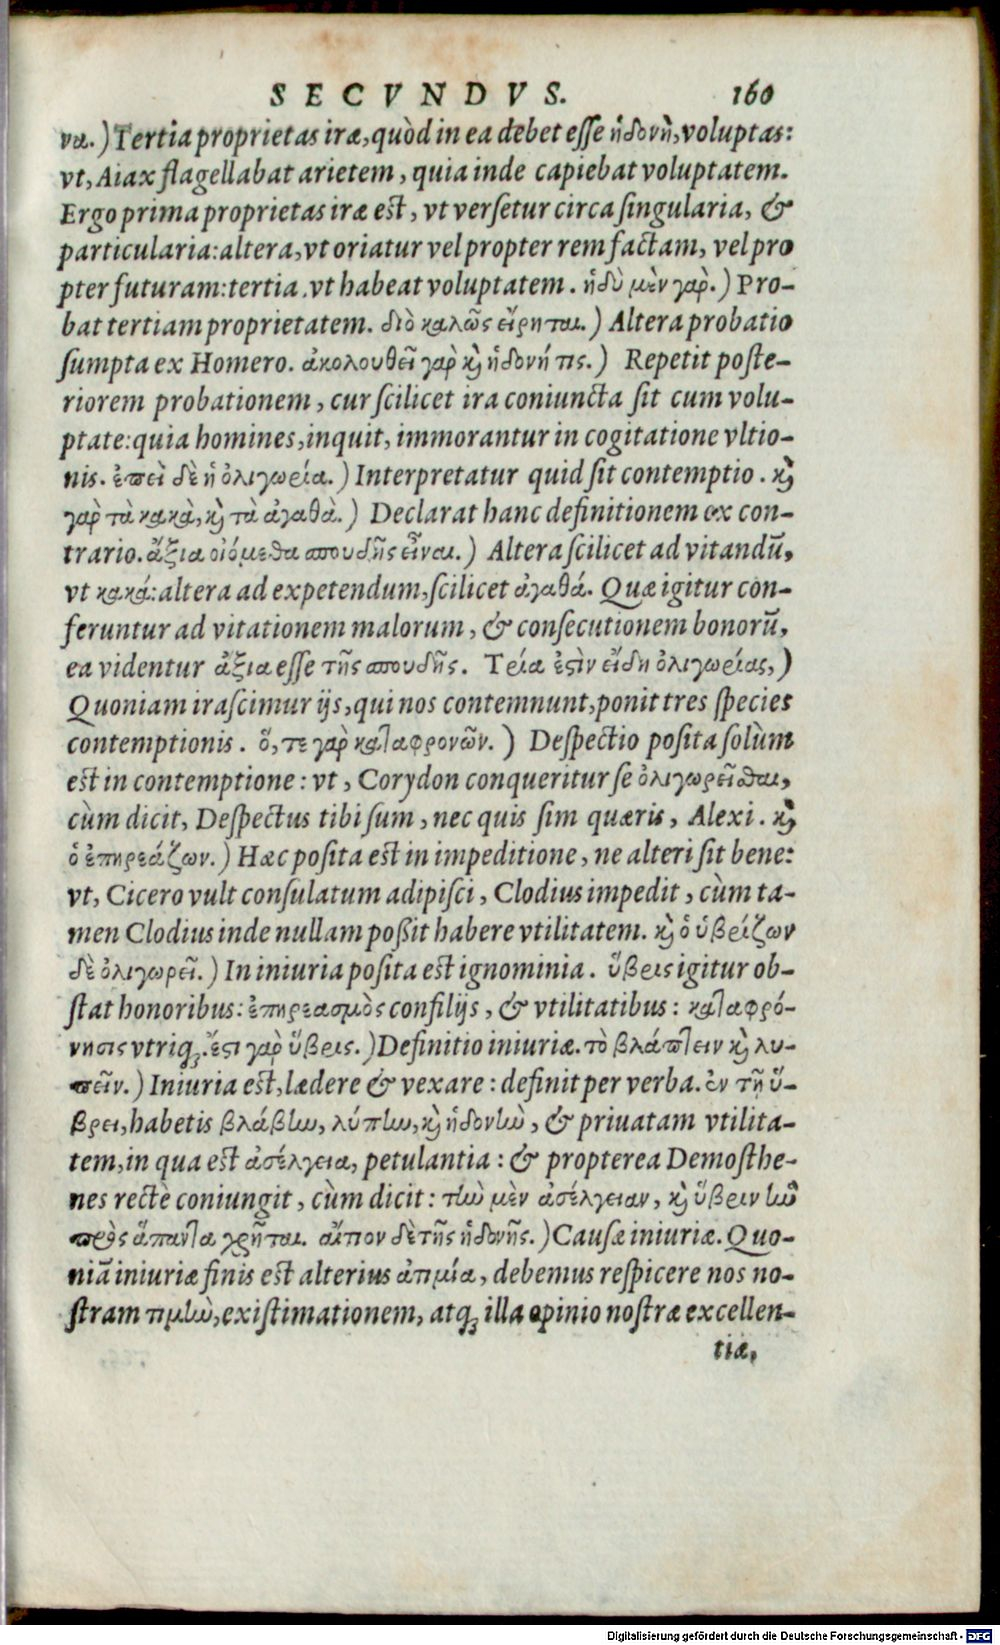 SECVNDVS. 160
να.) Tertia proprietas iræ, quòd in ea debet esse ἡδονὴ, voluptas:
vt, Aiax flagellabat arietem, quia inde capiebat voluptatem.
Ergo prima proprietas iræ est, vt versetur circa singularia, &
particularia: altera, vt oriatur vel propter rem factam, vel pro
pter futuram: tertia, vt habeat voluptatem. ἡδὺ μὲν γὰρ.) Pro-
bat tertiam proprietatem. διὸ καλῶς εἴρηται.) Altera probatio
sumpta ex Homero. ἀκολουθεῖ γὰρ καὶ ἡδονή τις.) Repetit poste-
riorem probationem, cur scilicet ira coniuncta sit cum volu-
ptate: quia homines, inquit, immorantur in cogitatione vltio-
nis. ἐπεὶ δὲ ἡ ὀλιγωρία.) Interpretatur quid sit contemptio. καὶ
γὰρ τὰ κακὰ, καὶ τὰ ἀγαθὰ.) Declarat hanc definitionem ex con-
trario. ἄξια οἰόμεθα σπουδῆς εἶναι.) Altera scilicet ad vitandū,
vt κακά: altera ad expetendum, scilicet ἀγαθά. Quæ igitur con-
feruntur ad vitationem malorum, & consecutionem bonorū,
ea videntur ἄξια esse τῆς σπουδῆς. Τρία ἐστὶν εἴδη ὀλιγωρίας,)
Quoniam irascimur ijs, qui nos contemnunt, ponit tres species
contemptionis. ὅ, τε γὰρ καταφρονῶν.) Despectio posita solùm
est in contemptione: vt, Corydon conqueritur se ὀλιγωρεῖσθαι,
cùm dicit, Despectus tibi sum, nec quis sim quæris, Alexi. καὶ
ὁ ἐπηρεάζων.) Hæc posita est in impeditione, ne alteri sit bene:
vt, Cicero vult consulatum adipisci, Clodius impedit, cùm ta-
men Clodius inde nullam poßit habere vtilitatem. καὶ ὁ ὑβρίζων
δὲ ὀλιγωρεῖ.) In iniuria posita est ignominia. ὕβρις igitur ob-
stat honoribus: ἐπηρεασμὸς consilijs, & vtilitatibus: καταφρό-
νησις vtriq;. ἔστι γὰρ ὕβρις.) Definitio iniuriæ. τὸ βλάπτειν καὶ λυ-
πεῖν.) Iniuria est, lædere & vexare: definit per verba. ἐν τῇ ὕ-
βρει, habetis βλάβην, λύπην, καὶ ἡδονὴν, & priuatam vtilita-
tem, in qua est ἀσέλγεια, petulantia: & propterea Demosthe-
nes rectè coniungit, cùm dicit: τὴν μὲν ἀσέλγειαν, καὶ ὕβριν ἣν
πρὸς ἅπαντα χρῆται. αἴτιον δὲ τῆς ἡδονῆς.) Causæ iniuriæ. Quo-
niā iniuriæ finis est alterius ἀτιμία, debemus respicere nos no-
stram τιμὴν, existimationem, atq; illa opinio nostræ excellen-
tiæ,
Digitalisierung gefördert durch die Deutsche Forschungsgemeinschaft - DFG